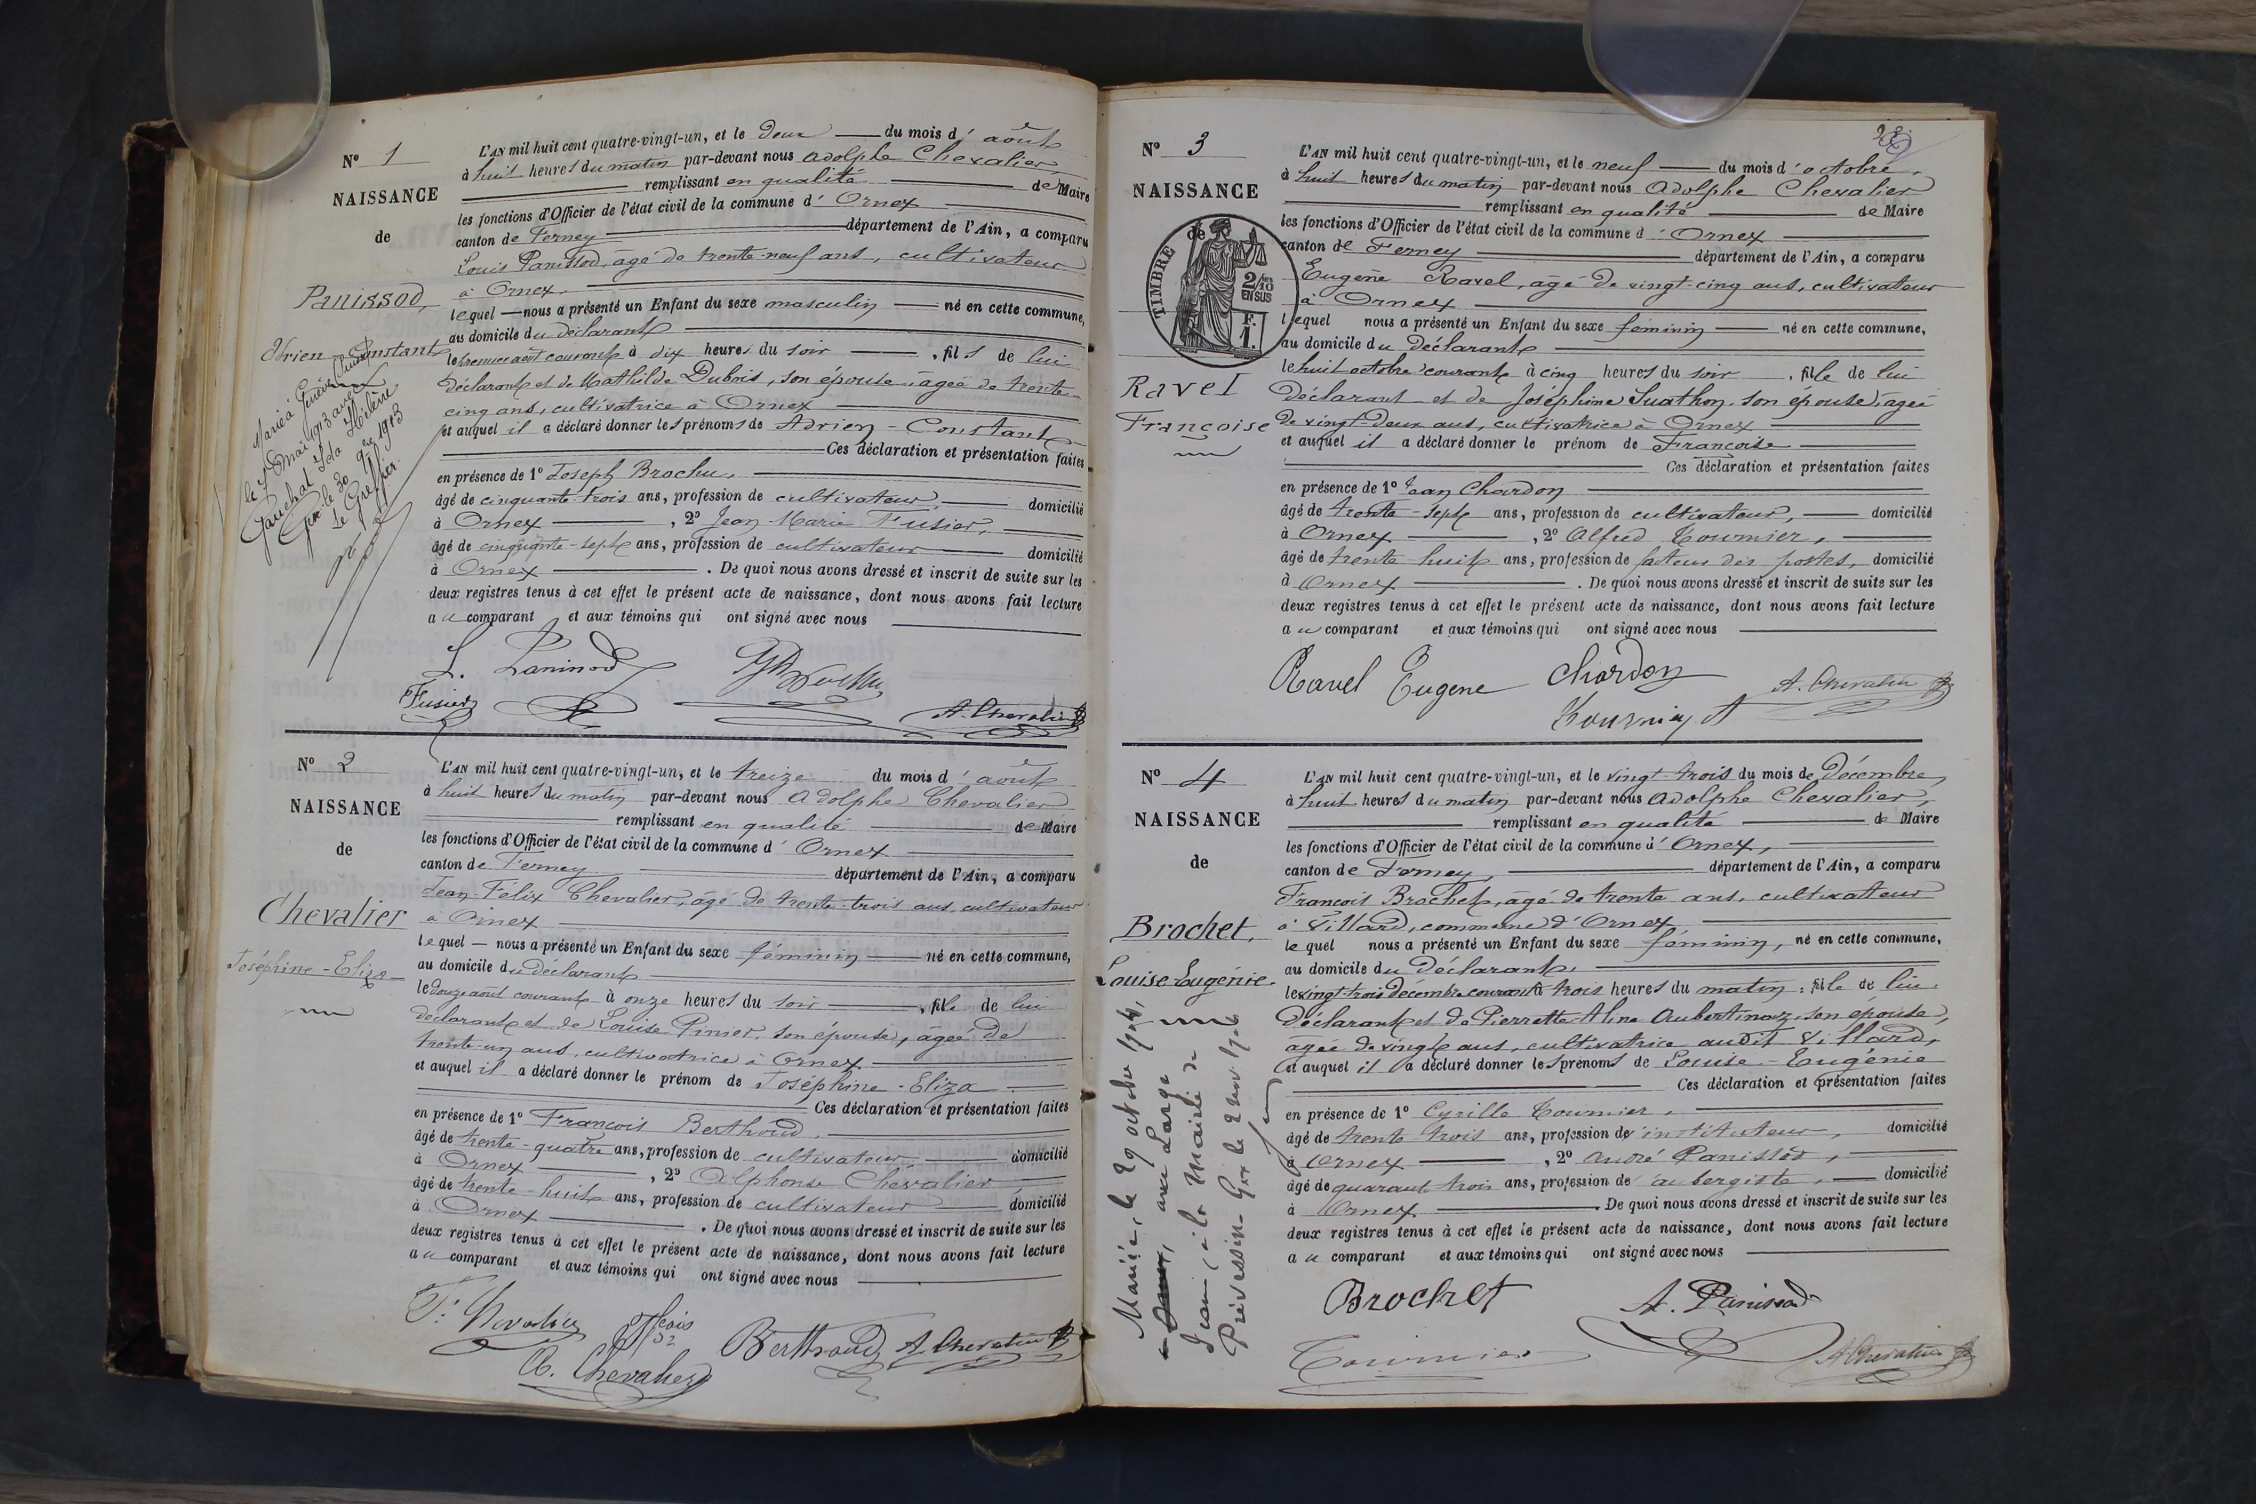 Nº 1
NAISSANCE
de
Panissod,
Adrien-Constant
Marié à Genève (Suisse)
le 3 mai 1913 avec
Gauchat Ida Hélène
Gex le 30 9bre 1913
Le Greffier
L'AN mil huit cent quatre-vingt-un, et le deux du mois d'août
à huit heures du matin par-devant nous Adolphe Chevalier,
remplissant en qualité de Maire
les fonctions d'Officier de l'état civil de la commune d'Ornex
canton de Ferney département de l'Ain, a comparu
Louis Panissod, âgé de trente-neuf ans, cultivateur
à Ornex.
lequel nous a présenté un Enfant du sexe masculin né en cette commune,
au domicile du déclarant
le premier août courant à dix heures du soir, fils de lui
déclarant et de Mathilde Dubois, son épouse, âgée de trente-
cinq ans, cultivatrice à Ornex
et auquel il a déclaré donner les prénoms de Adrien-Constant
Ces déclaration et présentation faites
en présence de 1º Joseph Brochu,
âgé de cinquante-trois ans, profession de cultivateur, domicilié
à Ornex, 2º Jean-Marie Fusier,
âgé de cinquante-sept ans, profession de cultivateur domicilié
à Ornex. De quoi nous avons dressé et inscrit de suite sur les
deux registres tenus à cet effet le présent acte de naissance, dont nous avons fait lecture
au comparant et aux témoins qui ont signé avec nous
L. Panissod
Fusier
A. Chevalier
Nº 2
NAISSANCE
de
Chevalier
Joséphine-Eliza
L'AN mil huit cent quatre-vingt-un, et le treize du mois d'août
à huit heures du matin par-devant nous Adolphe Chevalier
remplissant en qualité de Maire
les fonctions d'Officier de l'état civil de la commune d'Ornex
canton de Ferney département de l'Ain, a comparu
Jean-Félix Chevalier, âgé de trente-trois ans, cultivateur
à Ornex
lequel nous a présenté un Enfant du sexe féminin né en cette commune,
au domicile du déclarant
le douze août courant à onze heures du soir, fille de lui
déclarant et de Louise Pinier, son épouse, âgée de
trente-un ans, cultivatrice à Ornex
et auquel il a déclaré donner le prénom de Joséphine-Eliza
Ces déclaration et présentation faites
en présence de 1º François Berthoud,
âgé de trente-quatre ans, profession de cultivateur domicilié
à Ornex, 2º Alphonse Chevalier
âgé de trente-huit ans, profession de cultivateur domicilié
à Ornex. De quoi nous avons dressé et inscrit de suite sur les
deux registres tenus à cet effet le présent acte de naissance, dont nous avons fait lecture
au comparant et aux témoins qui ont signé avec nous
F. Chevalier
Berthoud
A. Chevalier
A. Chevalier
Nº 3
NAISSANCE
de
TIMBRE
2/10
EN SUS
F.
1.
Ravel
Françoise
L'AN mil huit cent quatre-vingt-un, et le neuf du mois d'octobre,
à huit heures du matin par-devant nous Adolphe Chevalier
remplissant en qualité de Maire
les fonctions d'Officier de l'état civil de la commune d'Ornex
canton de Ferney département de l'Ain, a comparu
Eugène Ravel, âgé de vingt-cinq ans, cultivateur
à Ornex
lequel nous a présenté un Enfant du sexe féminin né en cette commune,
au domicile du déclarant
le huit octobre courant à cinq heures du soir, fille de lui
déclarant et de Joséphine Suathon, son épouse, âgée
de vingt-deux ans, cultivatrice à Ornex
et auquel il a déclaré donner le prénom de Françoise
Ces déclaration et présentation faites
en présence de 1º Jean Chardon
âgé de trente-sept ans, profession de cultivateur, domicilié
à Ornex, 2º Alfred Tournier,
âgé de trente-huit ans, profession de facteur des postes, domicilié
à Ornex. De quoi nous avons dressé et inscrit de suite sur les
deux registres tenus à cet effet le présent acte de naissance, dont nous avons fait lecture
au comparant et aux témoins qui ont signé avec nous
Ravel Eugène Chardon A. Chevalier
Tournier A
Nº 4
NAISSANCE
de
Brochet,
Louise-Eugénie.
Mariée, le 29 octobre 1904,
avec Large
Jean, à la Mairie de
Prévessin. Gex le 2 nov. 1904
L'AN mil huit cent quatre-vingt-un, et le vingt-trois du mois de Décembre,
à huit heures du matin par-devant nous Adolphe Chevalier,
remplissant en qualité de Maire
les fonctions d'Officier de l'état civil de la commune d'Ornex,
canton de Ferney, département de l'Ain, a comparu
François Brochet, âgé de trente ans, cultivateur
à Villard, commune d'Ornex
lequel nous a présenté un Enfant du sexe féminin, né en cette commune,
au domicile du déclarant,
le vingt-trois décembre courant à trois heures du matin, fille de lui
déclarant et de Pierrette-Aline Aubertinaz, son épouse,
âgée de vingt ans, cultivatrice audit Villard,
et auquel il a déclaré donner les prénoms de Louise-Eugénie
Ces déclaration et présentation faites
en présence de 1º Cyrille Tournier,
âgé de trente-trois ans, profession de instituteur, domicilié
à Ornex, 2º André Panissod,
âgé de quarante-trois ans, profession de aubergiste, domicilié
à Ornex. De quoi nous avons dressé et inscrit de suite sur les
deux registres tenus à cet effet le présent acte de naissance, dont nous avons fait lecture
au comparant et aux témoins qui ont signé avec nous
Brochet A. Panissod
Tournier A. Chevalier